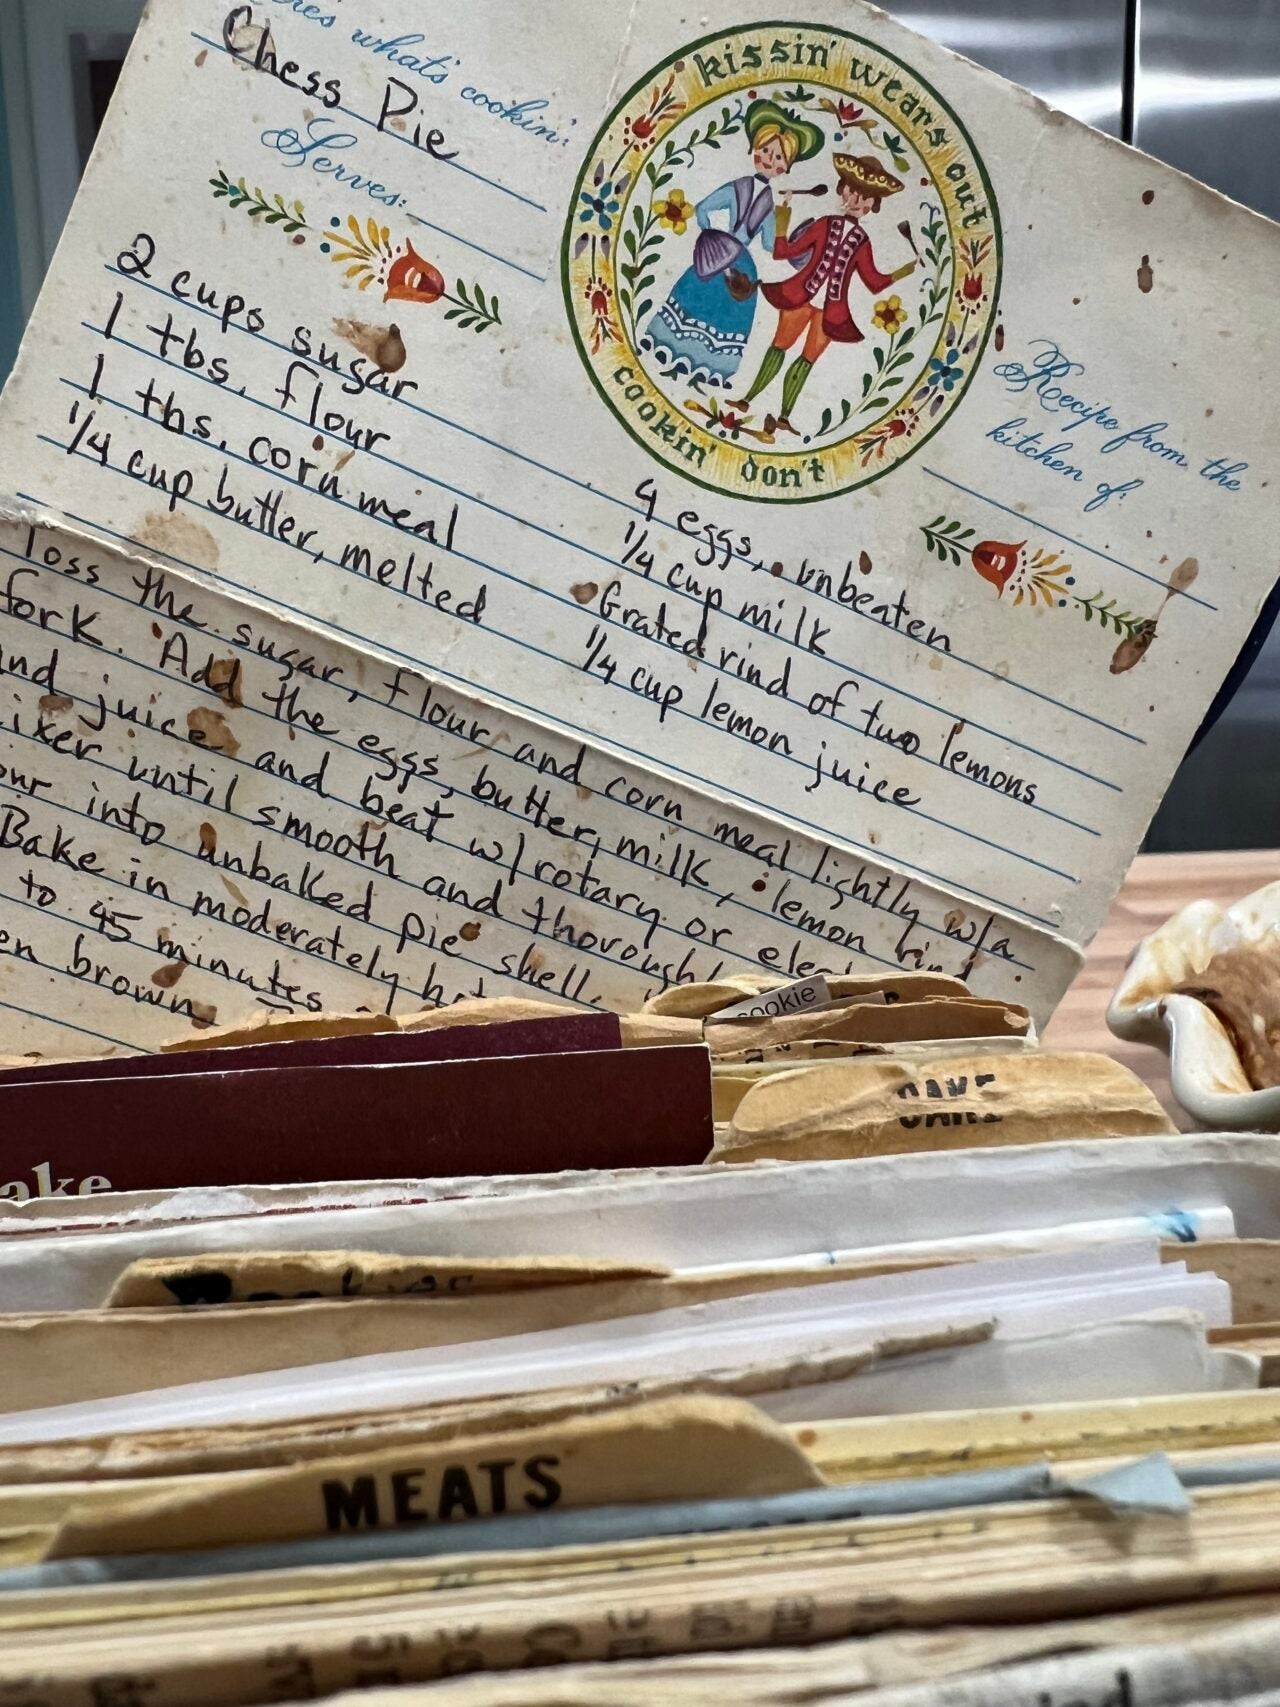 what's cookin':
Chess Pie
Serves:
kissin' wears out
cookin' don't
Recipe from the
kitchen of:
2 cups sugar
1 tbs. flour
1 tbs. corn meal
1/4 cup butter, melted
4 eggs, unbeaten
1/4 cup milk
Grated rind of two lemons
1/4 cup lemon juice
Toss the sugar, flour and corn meal lightly w/a
fork. Add the eggs, butter, milk, lemon rind
and juice and beat w/rotary or
until smooth and
into unbaked pie shell.
Bake in moderately
to 45 minutes
brown
cookie
CAKE
MEATS